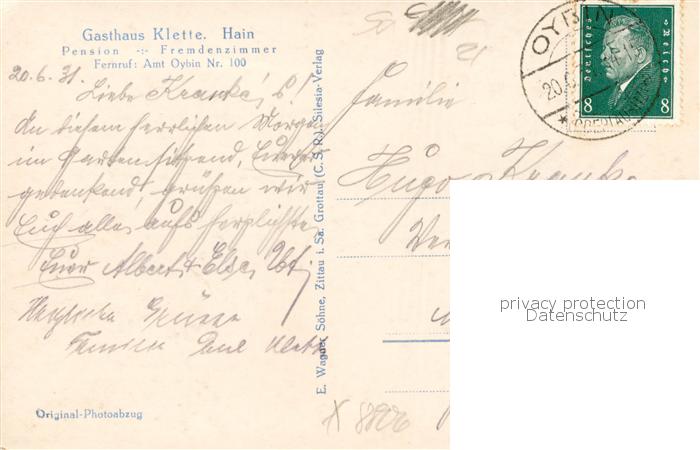 Gasthaus Klette. Hain
Pension -:- Fremdenzimmer
Fernruf: Amt Oybin Nr. 100
20.6.31.
Liebe Kranke's L!
An diesem herrlichen Morgen
im Garten sitzend, Eurer
gedenkend, grüßen wir
Euch alle aufs herzlichste
Euer Albert & Else
Herzliche Grüsse
Familie Paul Klette
Original-Photoabzug
E. Wagner Söhne, Zittau i. Sa. Grottau (C. S. R.) Silesia-Verlag
Familie
Hugo Kranke
8826
OYBIN
20.6
Deutsches Reich
8 8
privacy protection
Datenschutz